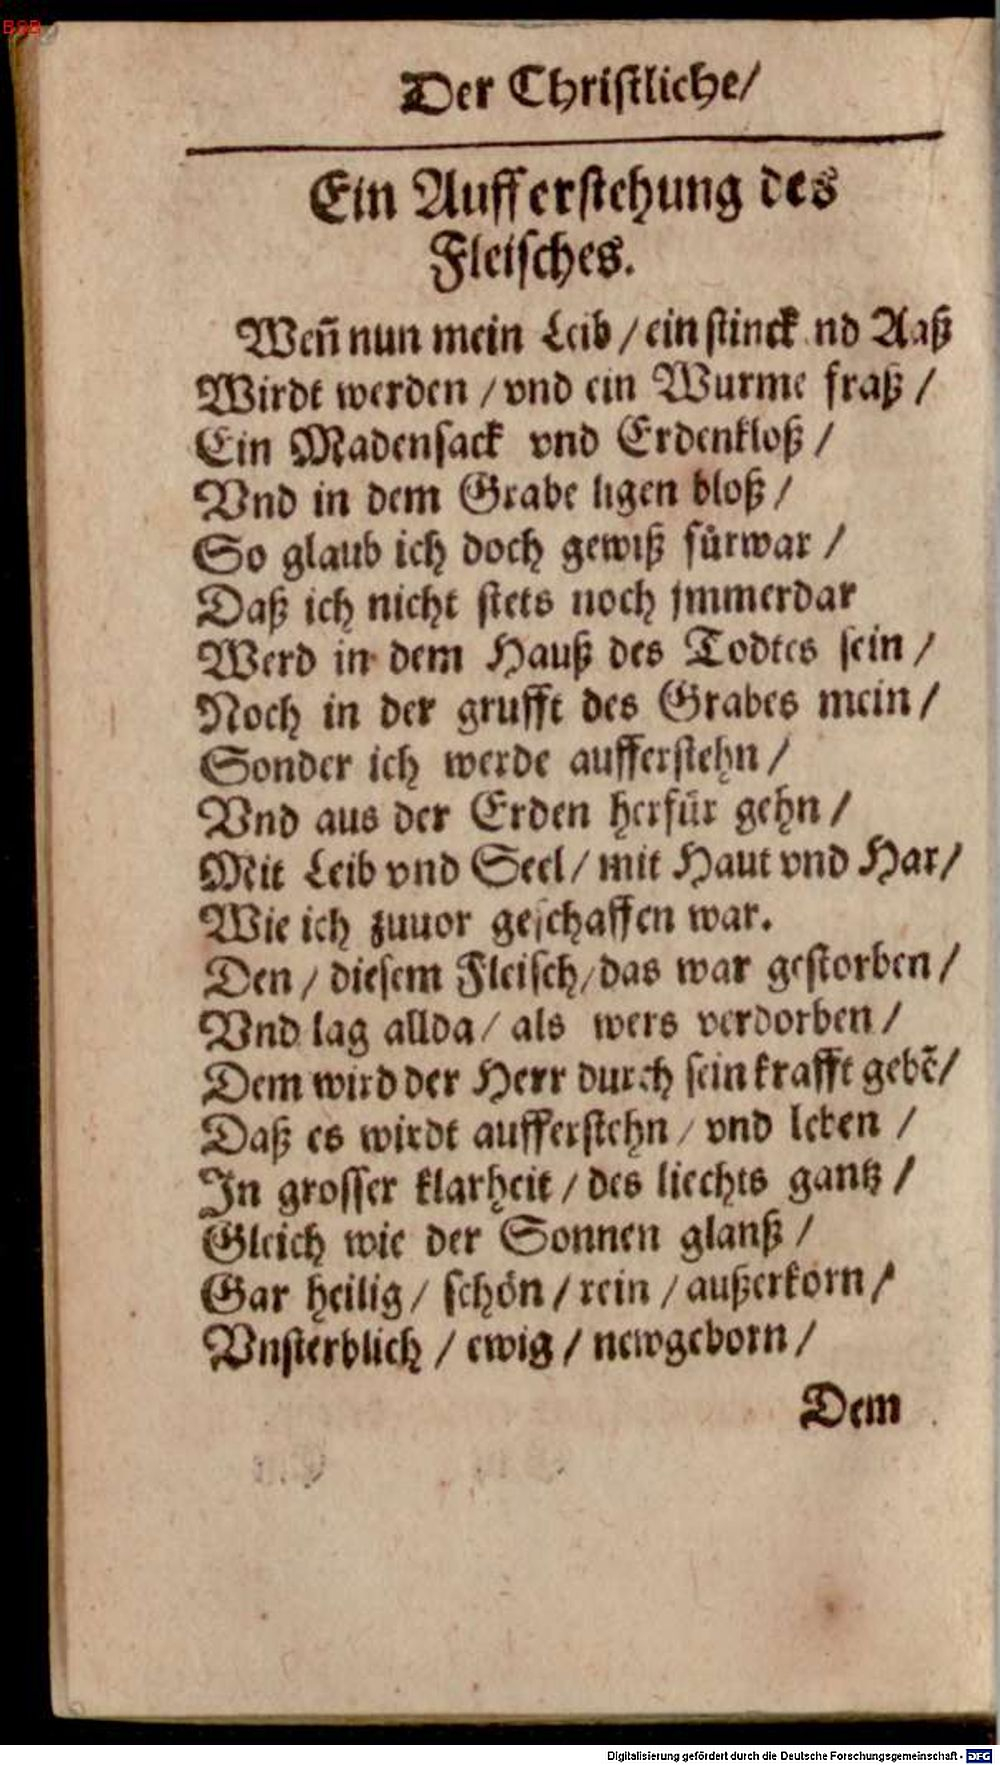 BSB
Der Christliche/
Ein Aufferstehung des
Fleisches.
Weñ nun mein Leib / ein stinck nd Aaß
Wirdt werden / vnd ein Wurme fraß /
Ein Madensack vnd Erdenkloß /
Vnd in dem Grabe ligen bloß /
So glaub ich doch gewiß fürwar /
Daß ich nicht stets noch jmmerdar
Werd in dem Hauß des Todtes sein /
Noch in der grufft des Grabes mein /
Sonder ich werde aufferstehn /
Vnd aus der Erden herfür gehn /
Mit Leib vnd Seel / mit Haut vnd Har /
Wie ich zuuor geschaffen war.
Den / diesem Fleisch / das war gestorben /
Vnd lag allda / als wers verdorben /
Dem wird der Herr durch sein krafft gebẽ /
Daß es wirdt aufferstehn / vnd leben /
In grosser klarheit / des liechts gantz /
Gleich wie der Sonnen glanß /
Gar heilig / schön / rein / außerkorn /
Vnsterblich / ewig / newgeborn /
Dem
Digitalisierung gefördert durch die Deutsche Forschungsgemeinschaft - DFG